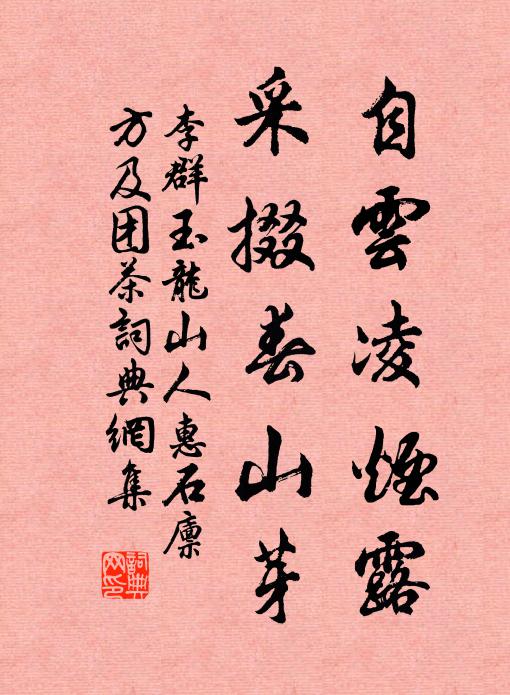 自雲凌煙露
采掇春山芽
李群玉龍山人惠石廩
方及团茶詞典網集
詞典
网印